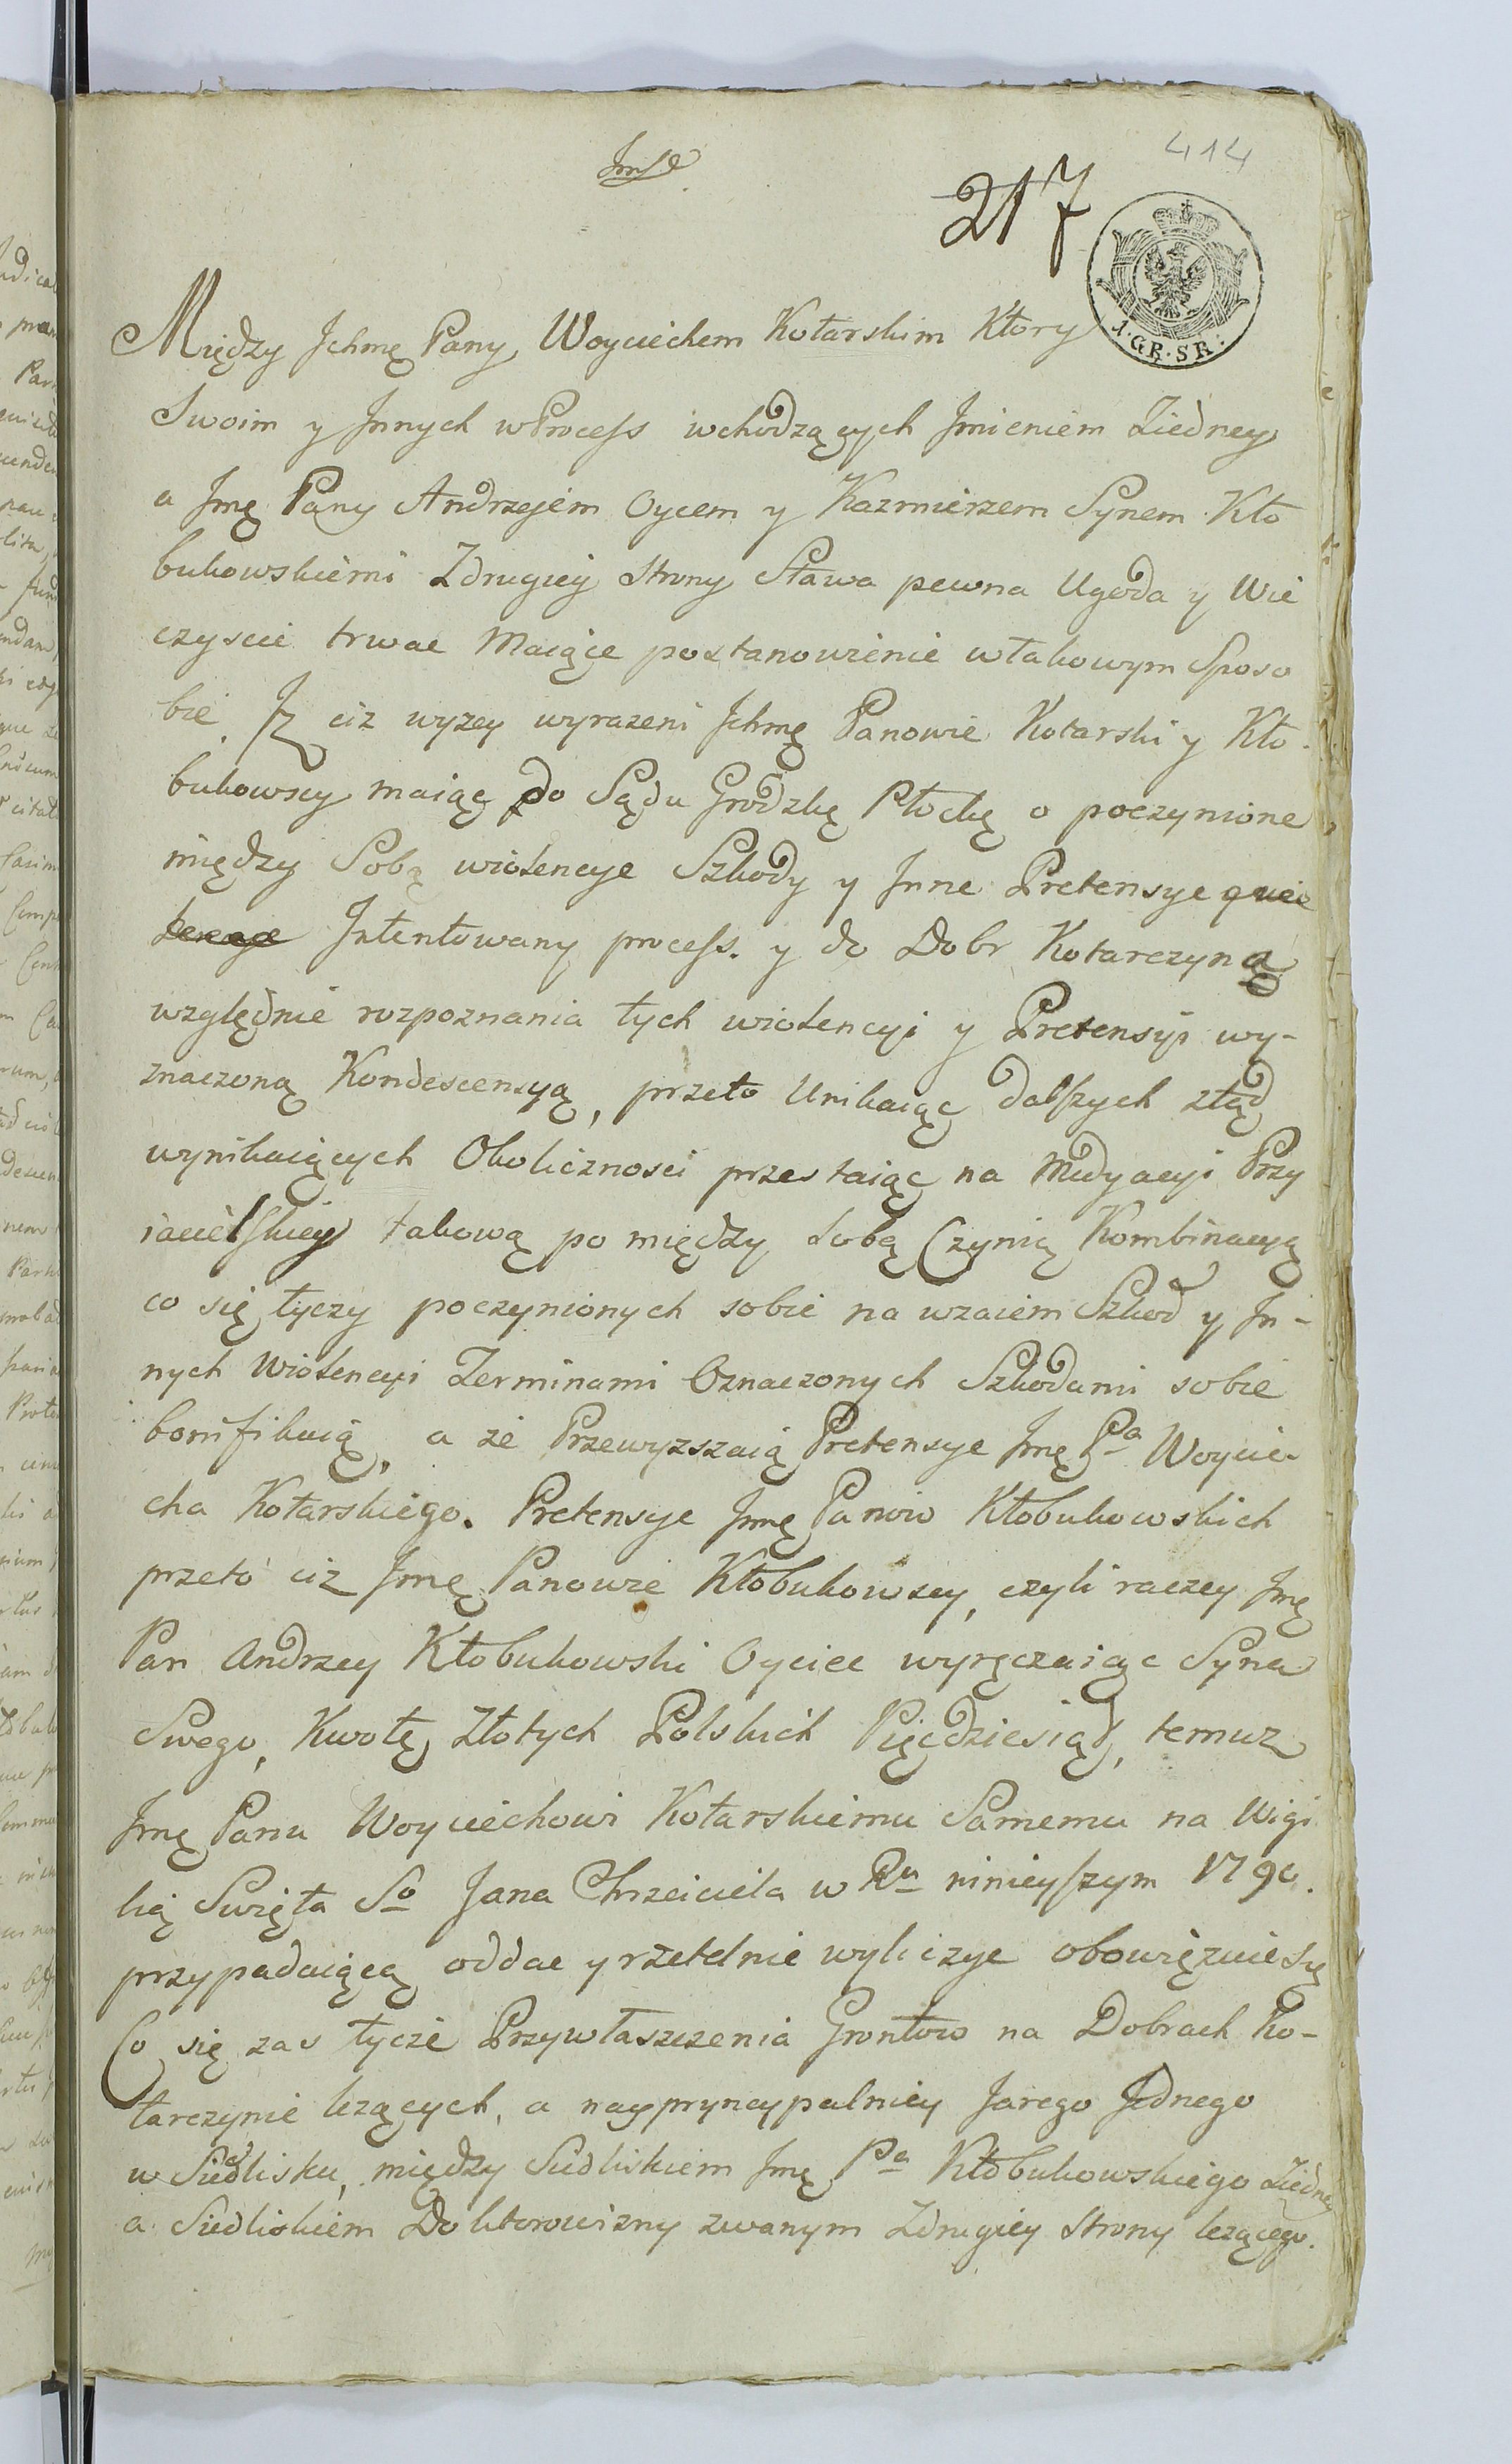 414
217
1. GR. SR:
Między Jchmę Pany Woyciechem Kotarskim Ktory
Swoim y Jnnych w Process wchodzących Jmieniem Ziedney
a Jmę Pany Andrzejem Oycem y Kazmierzem Synem Kło
bukowskiemi Zdrugiey Strony Stawa pewna Ugoda y Wie
czyscie trwac Maiące postanowienie wtakowym Sposo
bie. Jz ciz wyzey wyrazeni Jchmę Panowie Kotarski y Kło
bukowscy maiąc do Sądu Grodzkę Płockę o poczynione
między Sobą wiolencye Szkody y Jnne Pretensye
Jntentowany process. y do Dobr Kotarczyna
względnie rozpoznania tych wiolencyi y Pretensyi wy-
znaczoną Kondescensyą, przeto Unikaiąc dalszych ztąd
wynikaiących Okolicznosci przestaiąc na Medyacyi Przy
iacielskiey takową po między sobą Czynią Kombinacyą
co się tyczy poczynionych sobie na wzaiem Szkod y Jn-
nych Wiolencyi Terminami Oznaczonych Szkodami sobie
bonifikuią, a ze Przewyzszaią Pretensye Jmę Pa Woycie-
cha Kotarskiego. Pretensye Jmę Panow Kłobukowskich
przeto ciz Jmę Panowie Kłobukowscy, czyli raczey Jmę
Pan Andrzey Kłobukowski Oyciec wyręczaiąc Syna
Swego, Kwotę Złotych Polskich Pięcdziesiąt, temuz
Jmę Panu Woyciechowi Kotarskiemu Samemu na Wigi
lią Swięta So Jana Chrzciciela w Ru ninieyszym 1790.
przypadaiącą oddac y rzetelnie wyliczyc obowięzuie się
Co się zas tycze Przywłaszczenia Grontow na Dobrach Ko-
tarczynie lezących, a naypryncypalniey Jarego Jednego
w Siedlisku, między Siedliskiem Jmę Pa Kłobukowskiego Ziedney
a Siedliskiem Doktorowizny zwanym Zdrugiey Strony lezącego.